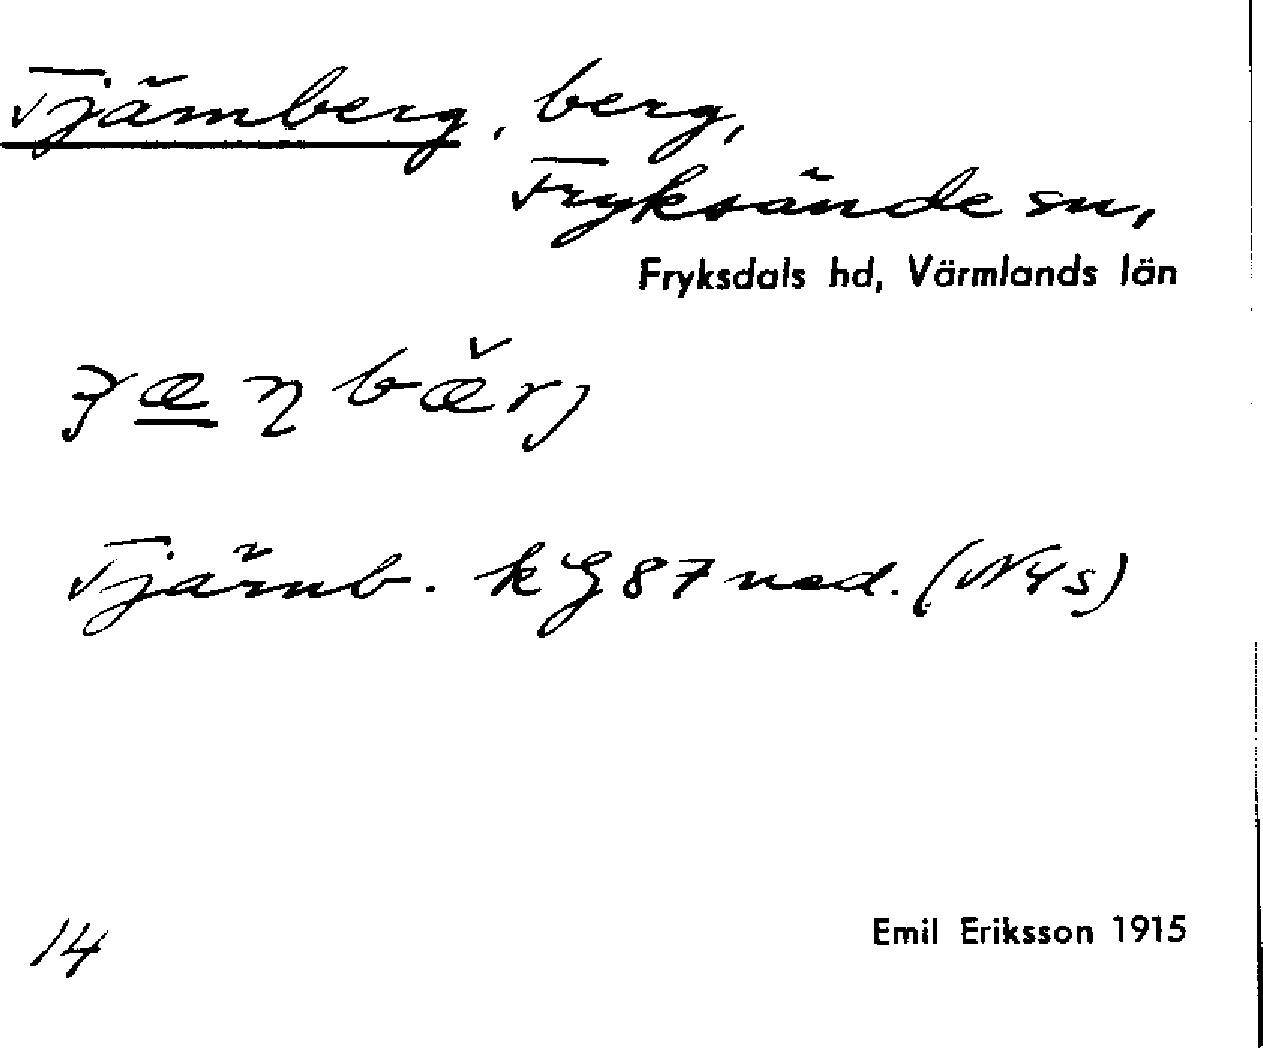 Tjärnberg, berg,
Fryksände sn,
Fryksdals hd, Värmlands län
bärj
Tjärnb. kg 87 ned. (N4s)
14
Emil Eriksson 1915